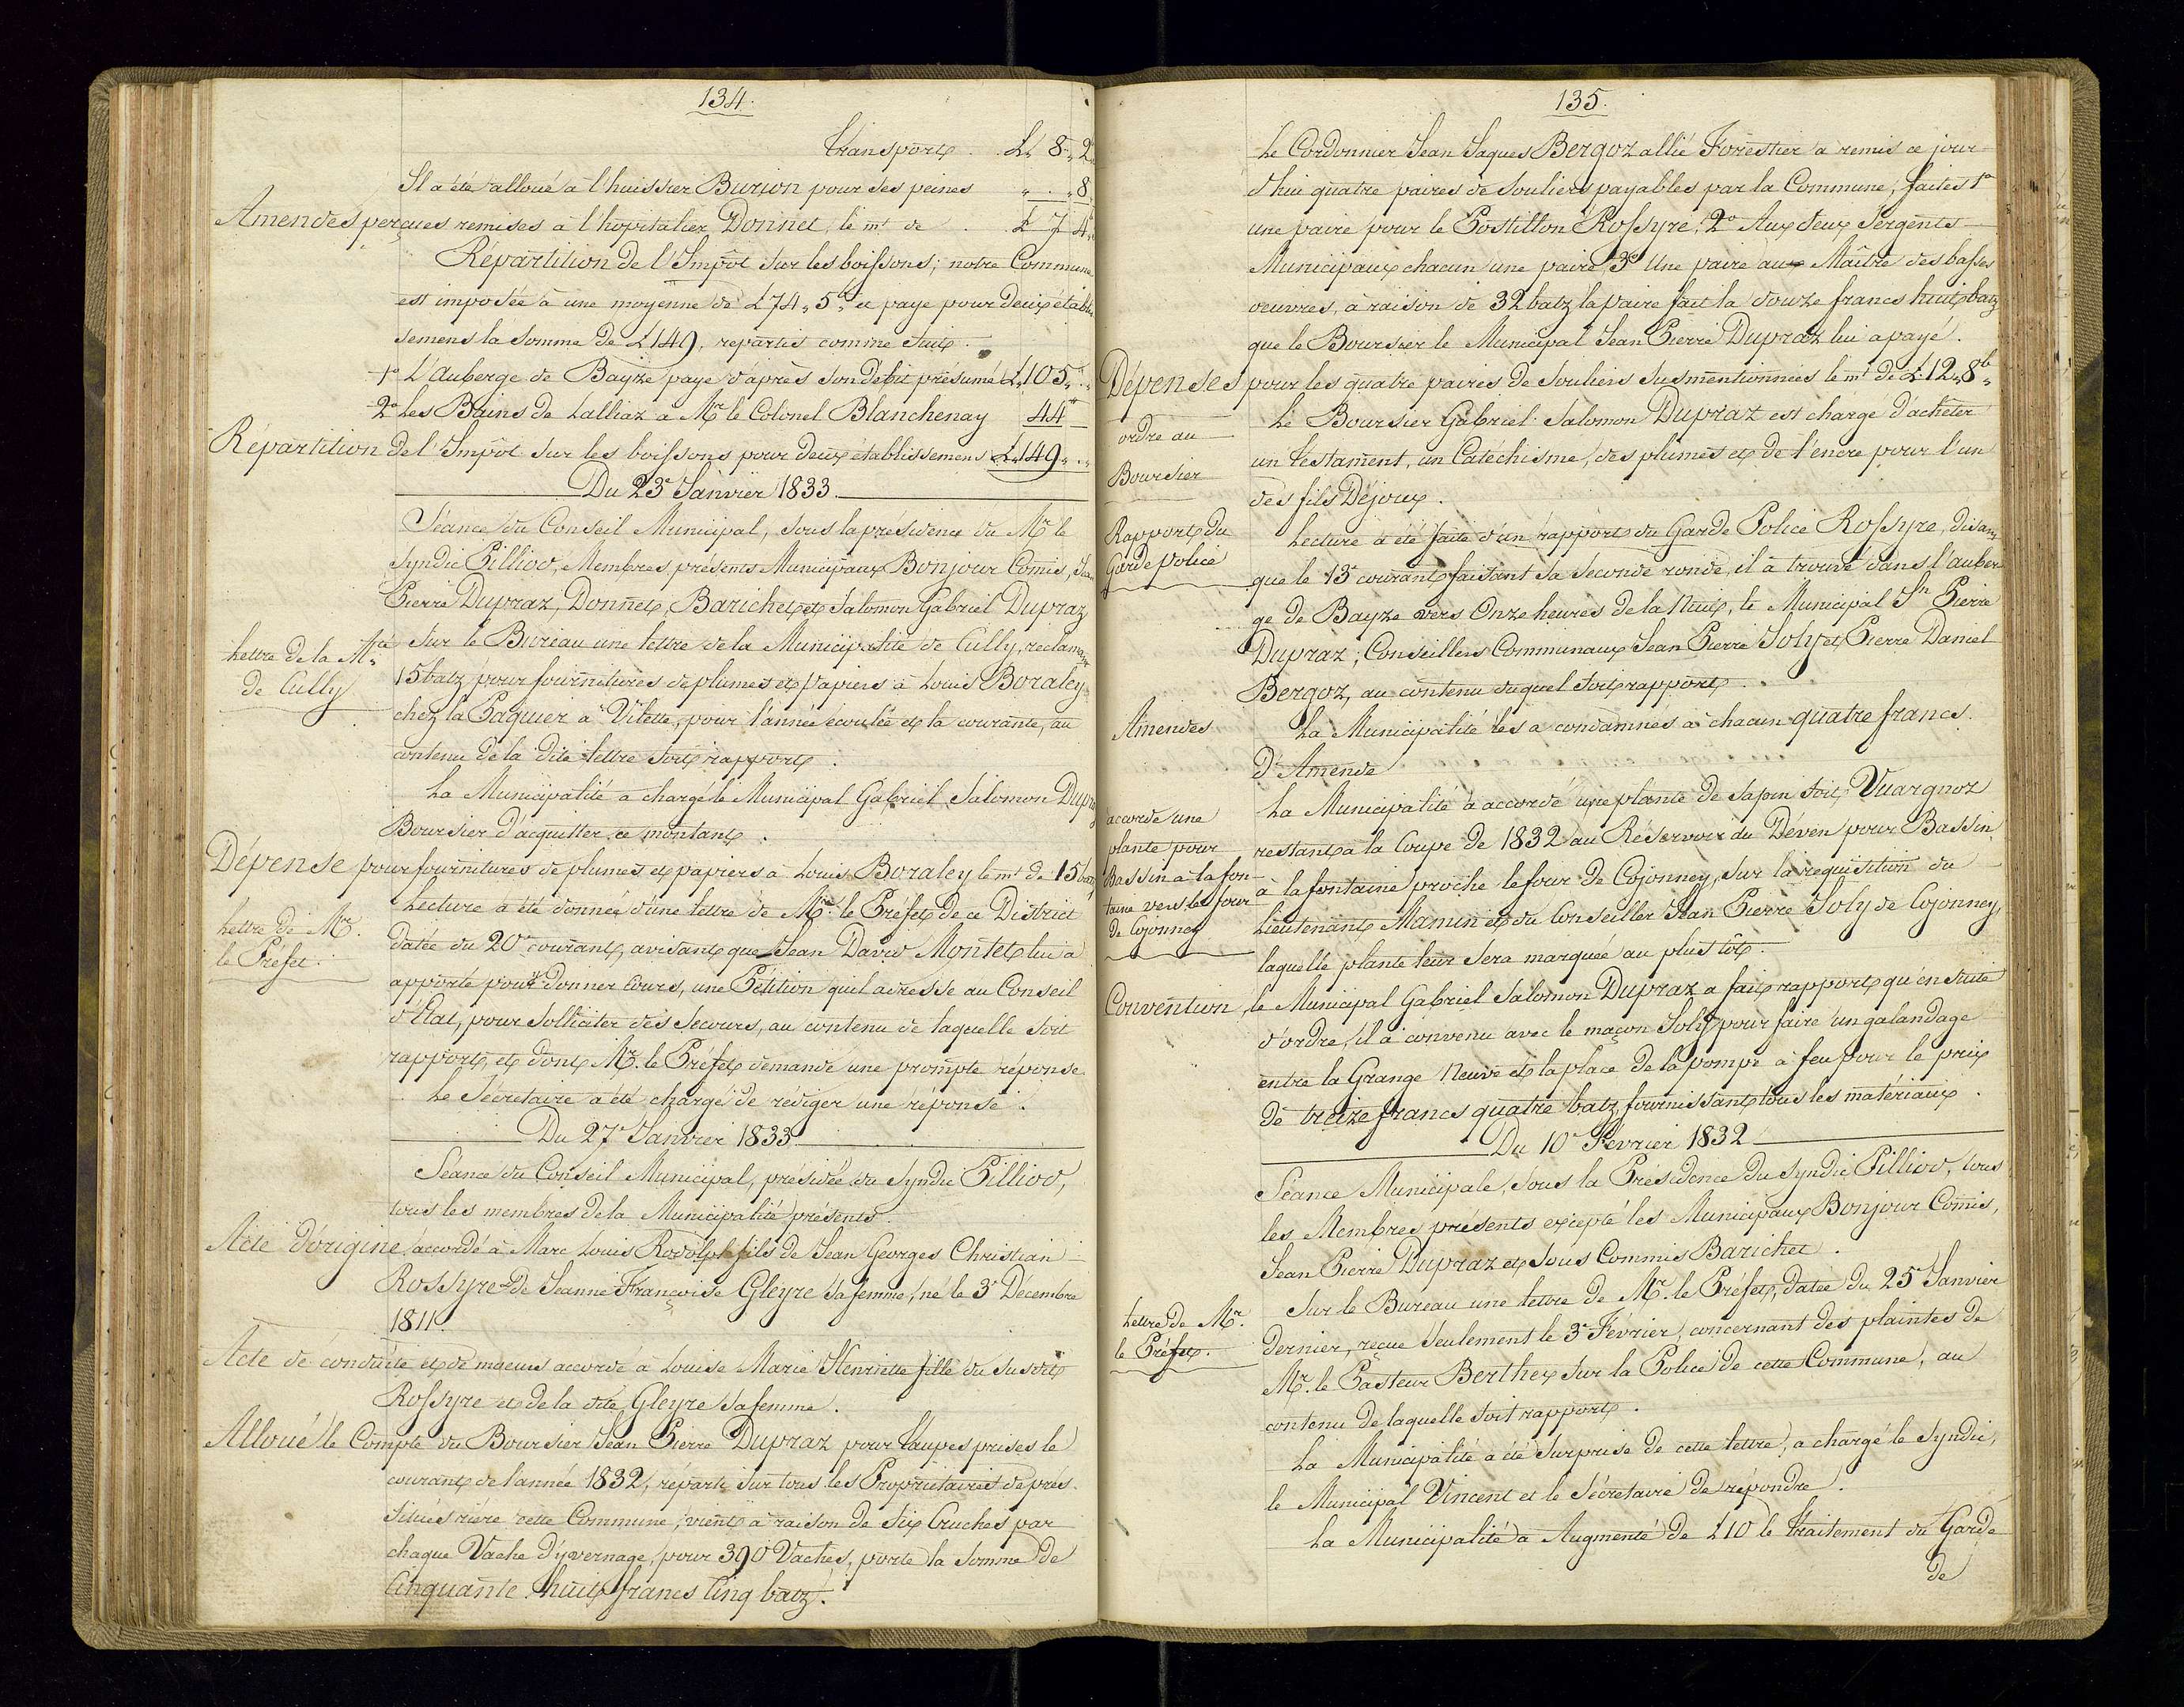 134.
Transport . L„ 8„ 2„
Il a été alloué à l'huissier Burion pour ses peines „ . „ 8
Amendes perçues remises à l'hopitalier Donnet, le mt de . L 7 4„
Répartition de l'Impôt sur les boissons; notre Commune
est imposée à une moyenne de L 74„ 5b„ et paye pour deux établis
semens la somme de L 149, repartis comme suit.
1o L'auberge de Bayze paye d'après son debit présumé L„ 105„ „
2o Les Bains de Lalliaz à Mr le Colonel Blanchenay 44 „
Répartition de l'Impôt sur les boissons pour deux établissemens L„ 149„ „
Du 23e Janvier 1833
Séance du Conseil Municipal, sous la presidence du Mr le
Syndic Pilliod, Membres présents Municipaux Bonjour Comis, Jean
Pierre Dupraz, Donnet, Barichet et Salomon Gabriel Dupraz
Lettre de la Mté
de Cully
Sur le Bureau une lettre de la Municipalité de Cully, reclamant
15 batz pour fournitures de plumes et papiers à Louis Boraley
chez la Paquier à Vilette, pour l'année écoulée et la courante, au
contenu de la dite lettre soit rapport .
La Municipalité a chargé le Municipal Gabriel Salomon Dupraz
Boursier d'acquitter ce montant .
Dépense pour fournitures de plumes et papiers à Louis Boraley le mt de 15 batz
Lettre de Mr.
le Préfet.
Lecture a été donnée d'une lettre de Mr. le Préfet de ce District
datée du 20e courant, avisant que Jean David Montet lui a
apporté pour Donner Cours, une Pétition quil adresse au Conseil
d'Etat, pour Solliciter des Secours, au contenu de laquelle soit
rapport, et dont Mr. le Préfet demande une prompte réponse
Le Sécretaire a été chargé de rédiger une réponse .
Du 27e Janvier 1833
Séance du Conseil Municipal, présidée du Syndic Pilliod,
tous les membres de la Municipalité présents.
Acte d'origine accordé à Marc Louis Rodolph fils de Jean Georges Christian
Rossyre et de Jeanne Françoise Gleyre sa femme, né le 3e Décembre
1811.
Acte de conduite et de mœurs accordé à Louise Marie Henriette fille du susdit
Rossyre et de la dite Gleyre sa femme.
Alloué le Compte du Boursier Jean Pierre Dupraz pour taupes prises le
courant de l'année 1832, réparti sur tous les Propriétaires de prés
situés rière cette Commune, vient à raison de Six Cruches par
chaque Vache d'yvernage, pour 390 Vaches, porte la somme de
Cinquante huit francs Cinq batz.
135.
Le Cordonnier Jean Jaques Bergoz allié Forestier a remis ce jour
d'hui quatre paires de souliers payables par la Commune, faites 1o
une paire pour le Postillon Rossyre, 2o Aux deux Sergents
Municipaux chacun une paire, 3o Une paire au Maître des basses
œuvres, à raison de 32 batz la paire fait la douze francs huit batz
que le Boursier le Municipal Jean Pierre Dupraz lui a payé.
Dépenses pour les quatre paires de Souliers susmentionnées le mt de L. 12„ 8b„
ordre au
Boursier
Le Boursier Gabriel Salomon Dupraz est chargé d'acheter
un testament, un Catéchisme, des plumes et de l'encre pour l'un
des fils Déjoux .
Rapport du
Garde police
Lecture a été faite d'un rapport du Garde Police Rossyre, disant
que le 13e courant faisant sa seconde ronde, il à trouvé dans l'auber
ge de Bayze vers Onze heures de la Nuit, le Municipal Jn Pierre
Dupraz; Conseillers Communaux Jean Pierre Joly et Pierre Daniel
Bergoz, au contenu duquel soit rapport .
Amendes
La Municipalité les a condamnés à chacun quatre francs.
D'Amende
accordé une
plante pour
Bassin à la fon-
taine vers le four
de Cojonney
La Municipalité a accordé une plante de sapin soit Vuargnoz
restant à la Coupe de 1832 au Réservoir du Déven pour Bassin
à la fontaine proche le four de Cojonney, sur la requisition du
Lieutenant Mamin et du Conseiller Jean Pierre Joly de Cojonney,
laquelle plante leur sera marquée au plus tôt.
Convention, le Municipal Gabriel Salomon Dupraz a fait rapport qu'en suite
d'ordre, il a convenu avec le maçon Joly pour faire un galandage
entre la Grange Neuve et la place de la pompe à feu pour le prix
de treize francs quatre batz, fournissant tous les matériaux .
Du 10e Février 1832
Séance Municipale, sous la Présidence du Syndic Pilliod, tous
les Membres présents excepté les Municipaux Bonjour Comis,
Jean Pierre Dupraz et sous Commis Barichet .
Lettre de Mr.
le Préfet.
Sur le Bureau une lettre de Mr. le Préfet, datée du 25e Janvier
dernier, reçue seulement le 3e Février, concernant des plaintes de
Mr. le Pasteur Berthex sur la Police de cette Commune, au
contenu de laquelle soit rapport .
La Municipalité a été Surprise de cette lettre, a chargé le Syndic,
le Municipal Vincent et le Sécretaire de répondre .
La Municipalité a Augmenté de L 10 le traitement du Garde
de